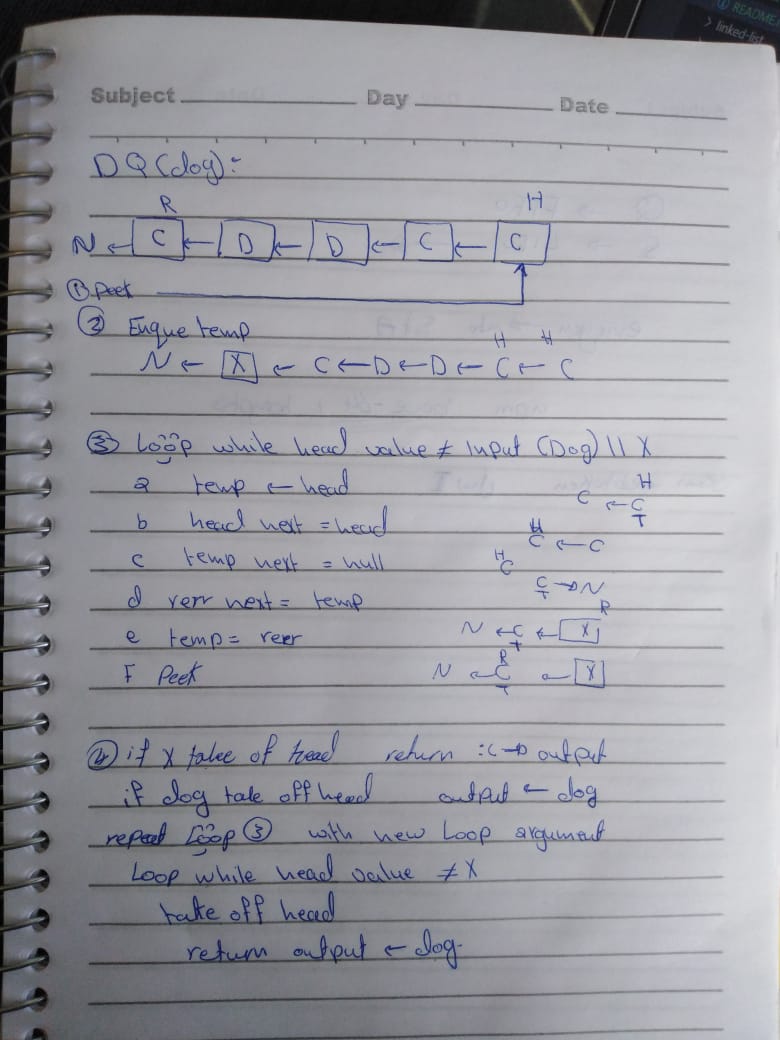 README
> linked-list
Subject Day Date
DQ(dog):
R H
N ← C ← D ← D ← C ← C
① Peek
② Enque temp
H H
N ← X ← C ← D ← D ← C ← C
③ Loop while head value ≠ input (Dog) || X
a temp ← head C ← C H T
b head next = head H C ← C
c temp next = null H C
C → N T
d rerr next = temp R
e temp = rerr N ← C ← X T
F Peek N ← C ← X R T
④ if X take of head return :C → output
if dog take off head output ← dog
repeat Loop ③ with new Loop argument
Loop while head value ≠ X
take off head
return output ← dog.